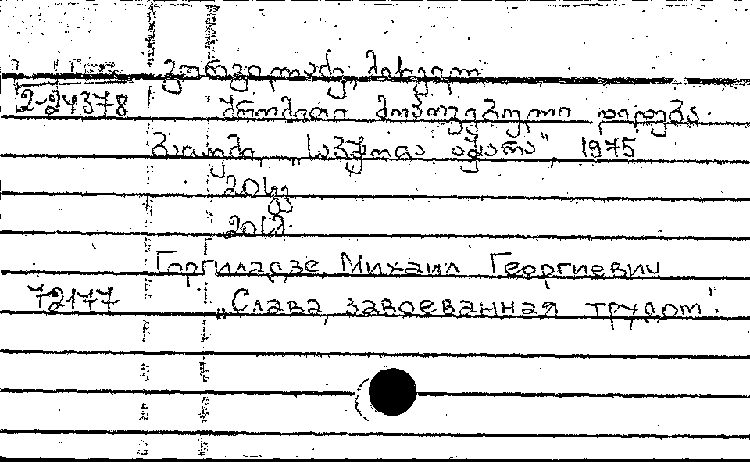 გორგილაძე, მიხეილ
2-24378 შრომით მოპოვებული დიდება.
ბათუმი, „საბჭოთა აჭარა", 1975
20 სმ.
Горгиладзе, Михаил Георгиевич
72177 „Слава, завоеванная трудом".